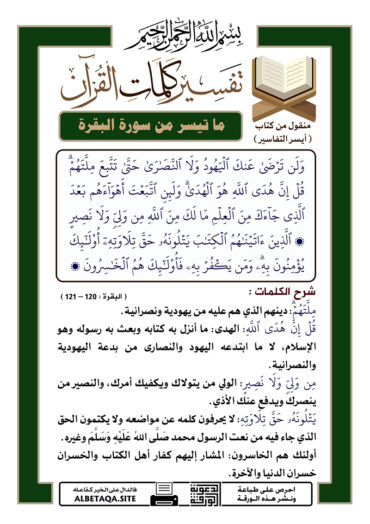 بِسْمِ اللَّهِ الرَّحْمَنِ الرَّحِيمِ
تفسير كلمات القرآن
منقول من كتاب
( أيسر التفاسير )
ما تيسر من سورة البقرة
وَلَن تَرْضَىٰ عَنكَ ٱلْيَهُودُ وَلَا ٱلنَّصَٰرَىٰ حَتَّىٰ تَتَّبِعَ مِلَّتَهُمْۗ
قُلْ إِنَّ هُدَى ٱللَّهِ هُوَ ٱلْهُدَىٰۗ وَلَئِنِ ٱتَّبَعْتَ أَهْوَآءَهُم بَعْدَ
ٱلَّذِى جَآءَكَ مِنَ ٱلْعِلْمِ مَا لَكَ مِنَ ٱللَّهِ مِن وَلِىٍّ وَلَا نَصِيرٍ
۞ ٱلَّذِينَ ءَاتَيْنَٰهُمُ ٱلْكِتَٰبَ يَتْلُونَهُۥ حَقَّ تِلَاوَتِهِۦٓ أُو۟لَٰٓئِكَ
يُؤْمِنُونَ بِهِۦۗ وَمَن يَكْفُرْ بِهِۦ فَأُو۟لَٰٓئِكَ هُمُ ٱلْخَٰسِرُونَ ۞
شرح الكلمات :
( البقرة : 120 – 121 )
مِلَّتَهُمْۗ: دينهم الذي هم عليه من يهودية ونصرانية.
قُلْ إِنَّ هُدَى ٱللَّهِ: الهدى: ما أنزل به كتابه وبعث به رسوله وهو
الإسلام، لا ما ابتدعه اليهود والنصارى من بدعة اليهودية
والنصرانية.
مِن وَلِىٍّ وَلَا نَصِيرٍ: الولي من يتولاك ويكفيك أمرك، والنصير من
ينصرك ويدفع عنك الأذي.
يَتْلُونَهُۥ حَقَّ تِلَاوَتِهِۦ: لا يحرفون كلمه عن مواضعه ولا يكتمون الحق
الذي جاء فيه من نعت الرسول محمد صَلَّى اللهُ عَلَيْهِ وَسَلَّمَ وغيره.
أولئك هم الخاسرون: المشار إليهم كفار أهل الكتاب والخسران
خسران الدنيا والآخرة.
احرص على طباعة
ونشر هذه الورقة
الدعوية
الورقة
فالدال على الخير كفاعله
ALBETAQA.SITE